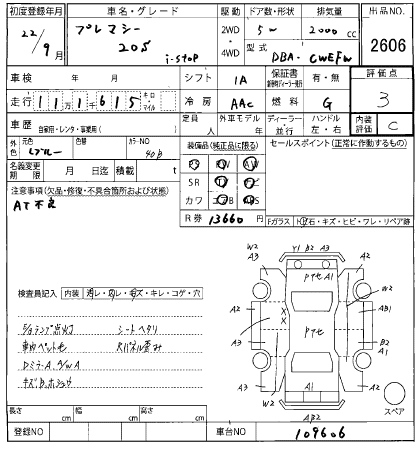 初度登録年月 車名・グレード 駆動 ドア数・形状 排気量 出品NO.
22/9月 プレマシー 20S i-stop 2WD 4WD 5W 2000 cc 2606
型式 DBA-CWEFW
車検 年 月 シフト IA 保証書 有・無 評価点
走行 11万1千615 キロ・マイル 冷房 AAC 燃料 G 3
車歴 自家用・レンタ・事業用( ) 定員 人 外車モデル 年 ディーラー・並行 ハンドル 左・右 内装評価 C
外色 元色 色替 カラーNO 装備品(純正品に限る) セールスポイント(正常に作動するもの)
名義変更期限 月 日迄 積載 t
SR
注意事項(欠品・修復・不具合箇所および状態) カワ
AT不良 R券 13660 Fガラス トビ石・キズ・ヒビ・ワレ・リペア跡
W2 A3 Y1 B2 A3 A2
Pアセ A1
検査員記入 内装 汚レ・スレ・キズ・キレ・コゲ・穴
A2 A3 X X Pアセ A2 AB1
S/Bランプ点灯 シートヘタリ
車内ペット毛 Rパネル歪み A3 B2 A1
DミラーA. F/W A
A3 W2 A1 A2 W2
スペア
AB2
長さ cm 幅 cm 高さ cm
登録NO 車台NO 109606